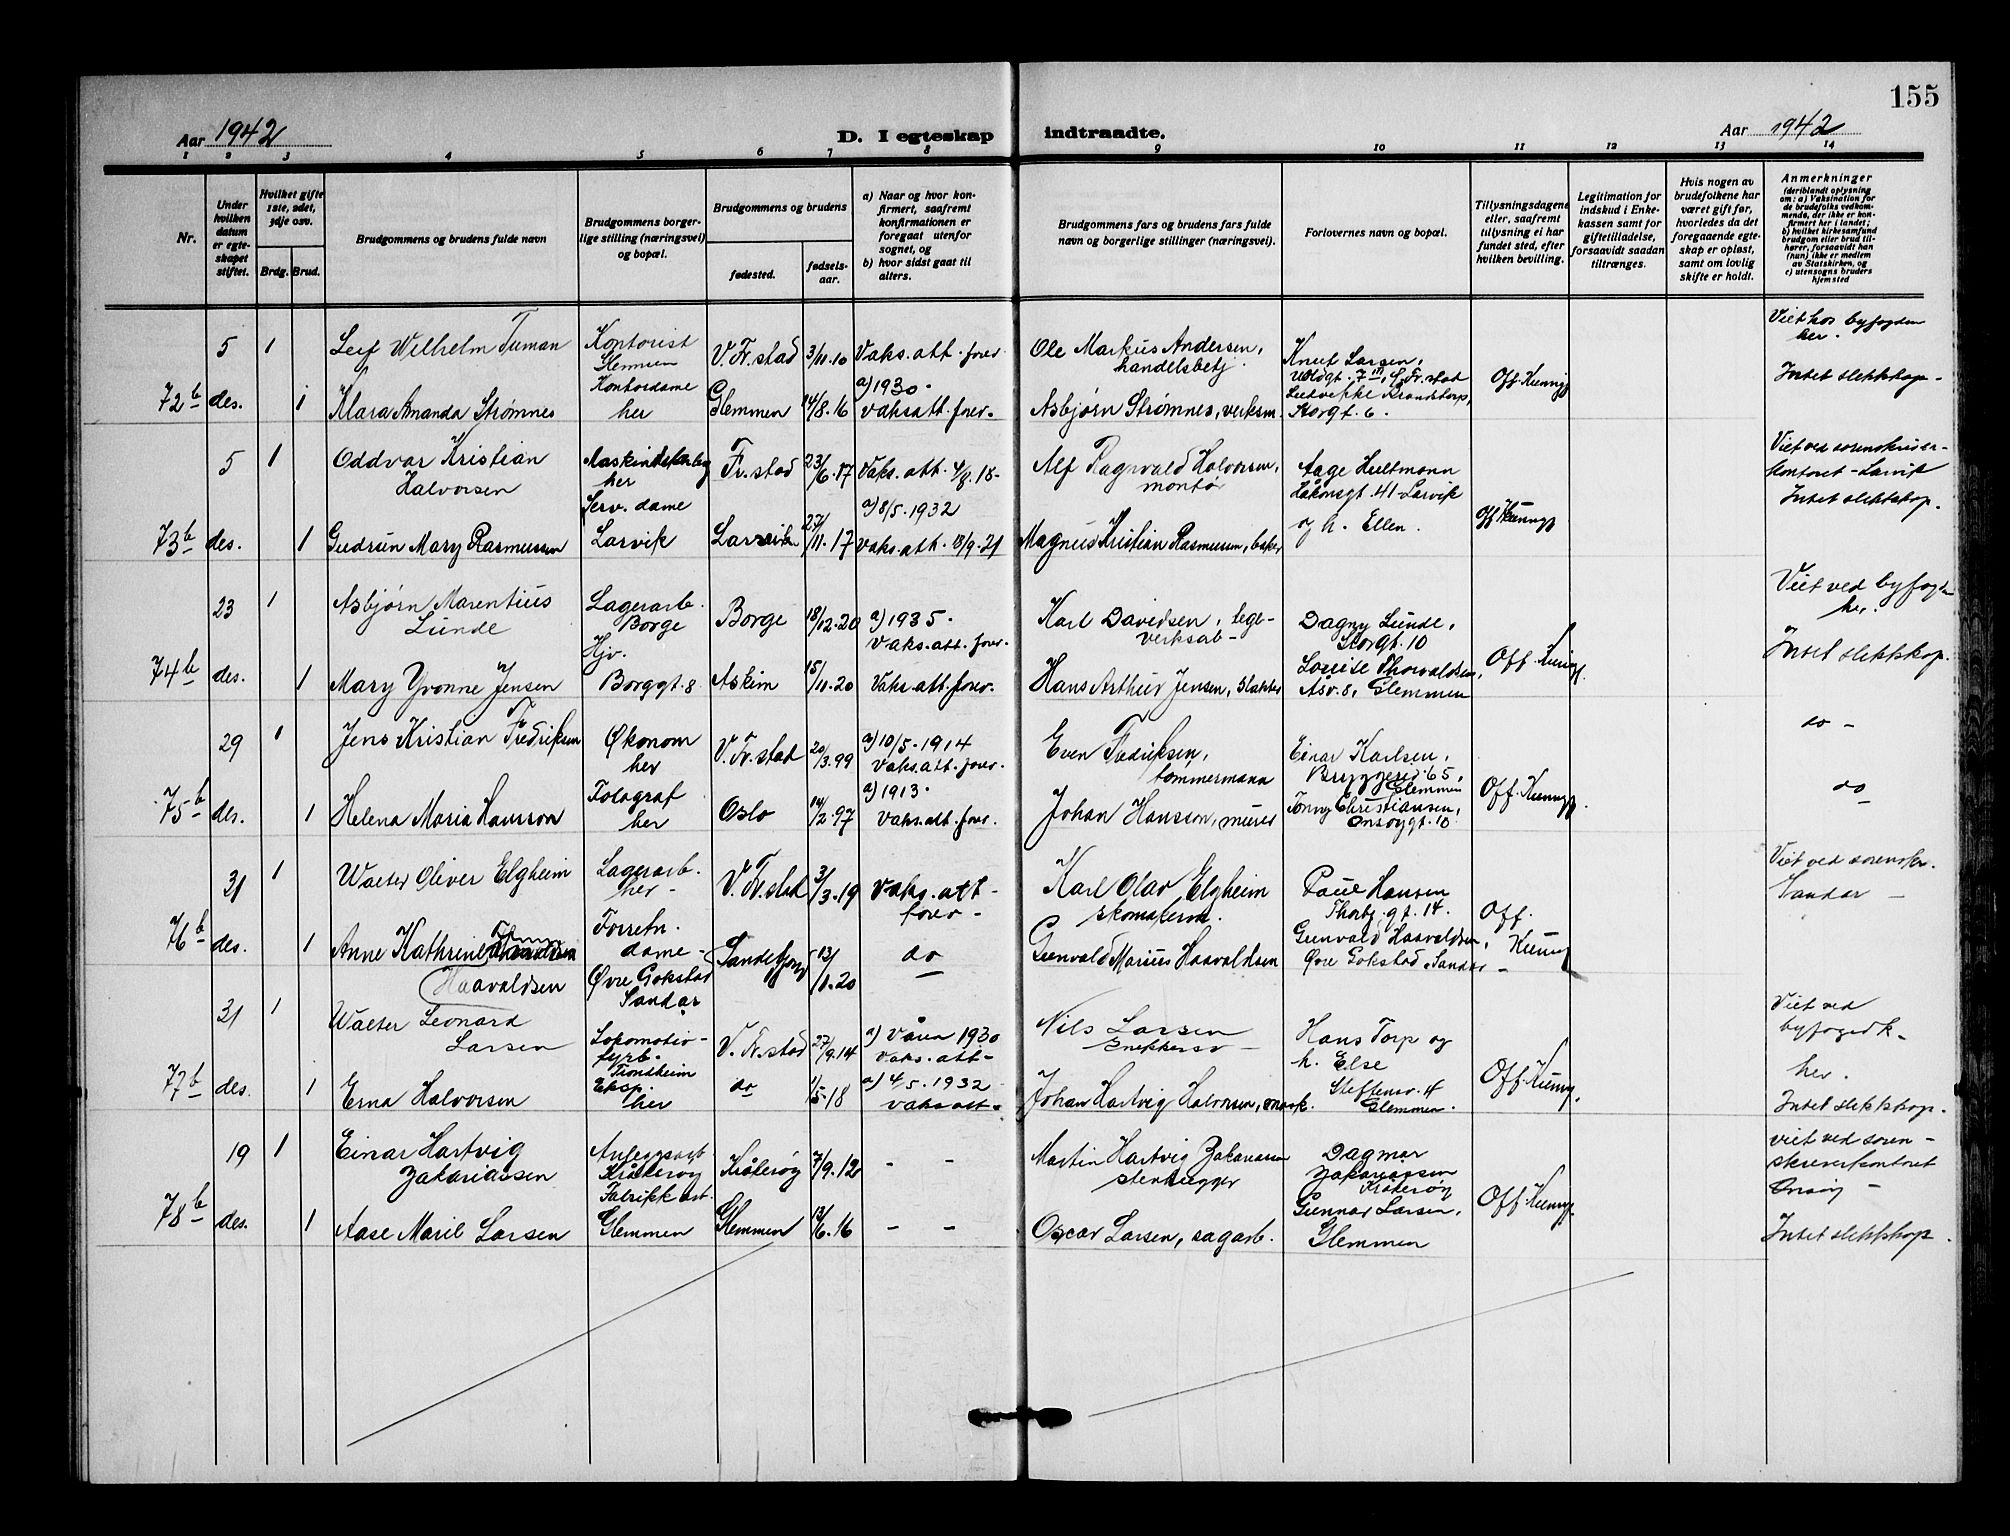 155
Aar 1942
D. I egteskap indtraadte.
Aar 1942
1 2 3 4 5 6 7 8 9 10 11 12 13 14
Nr.
Under
hvilken
datum
er egte-
skapet
stiftet.
Hvilket gifte
1ste, 2det,
3dje osv.
Brdg. Brud.
Brudgommens og brudens fulde navn
Brudgommens borger-
lige stilling (næringsvei)
og bopæl.
Brudgommens og brudens
fødested.
fødsels-
aar.
a) Naar og hvor kon-
firmert, saafremt
konfirmationen er
foregaat utenfor
sognet, og
b) hvor sidst gaat til
alters.
Brudgommens fars og brudens fars fulde
navn og borgerlige stillinger (næringsvei).
Forlovernes navn og bopæl.
Tillysningsdagene
eller, saafremt
tillysning ei har
fundet sted, efter
hvilken bevilling.
Legitimation for
indskud i Enke-
kassen samt for
giftetilladelse,
forsaavidt saadan
tiltrænges.
Hvis nogen av
brudefolkene har
været gift før,
hvorledes da det
foregaaende egte-
skap er opløst,
samt om lovlig
skifte er holdt.
Anmerkninger
(deriblandt oplysning
om: a) Vaksination for
de brudefolks vedkom-
mende, der ikke er kon-
firmert her i landet;
b) hvilket kirkesamfund
brudgom eller brud til-
hører, forsaavidt han
(hun) ikke er medlem
av Statskirken, og
c) utensogns bruders
hjemsted
5 1 Leif Wilhelm Tuman
Kontorist
Glemmen
V. Fr.stad 3/11.10 Vaks.att. forev.
Ole Markus Andersen,
handelsbetj.
Knut Larsen,
Viet hos byfogden
her.
72b des. 1 Klara Amanda Strømnes
Kontordame
her
Glemmen 14/8.16
a) 1930.
Vaks att. forev.
Asbjørn Strømnes, verksm.
Storgt. 6.
Off. Kunng.
Intet slektskap.
5 1 Oddvar Kristian
Halvorsen
her
Fr.stad 23/6.17 Vaks. att. 4/8.18-
Alf Ragnvald Halvorsen,
montør
Aage Hultmann
Håkonsgt. 41 - Larvik
Viet ved sorenskriver-
kontoret - Larvik
Intet slektskap.
73b des. 1 Gudrun Mary Rasmussen
Serv. dame
Larvik
Larvik 27/11.17
a) 8/5.1932
Vaks. att. 13/9.21
Magnus Kristian Rasmussen, baker
og h. Ellen.
Off. Kunng.
23 1 Asbjørn Marentius
Lunde
Lagerarb.
Borge
Borge 18/12.20
a) 1935.
Vaks. att. forev.
Karl Davidsen, lege-
verksarb-
Dagny Lunde,
Storgt. 10
Viet ved byfogden
her.
74b des. 1 Mary Yvonne Jensen
Hjv.
Borggt. 8
Askim 15/11.20 Vaks. att. forev.
Hans Arthur Jensen, slakter
Lovise Thorvaldsen,
Åsv. 8, Glemmen
Off. Kunng.
Intet slektskap.
29 1 Jens Kristian Fredriksen
Økonom
her
V. Fr. stad 20/3.99
a) 10/5.1914
Vaks. att. forev.
Even Fredriksen,
tømmermann
Einar Karlsen,
Bryggerid. 65,
Glemmen
do -
75b des. 1 Helena Maria Hansson
Fotograf
her
Oslo 14/2.97
a) 1913.
Vaks. att. forev.
Johan Hansson, murer
Tonny Christiansen,
Onsøygt. 10
Off. Kunng.
do
31 1 Walter Oliver Elgheim
Lagerarb.
her -
V. Fr. stad 3/3.19
Vaks. att -
forev -
Karl Olav Elgheim
skomakerm.
Paul Hansen
Thorbj. gt. 14.
Viet ved sorenskr.
Sandar -
76b des. 1 Anne Kathrine
Haavaldsen
Forretn.
dame -
Øvre Gokstad
Sandar
Sandefjord 13/1.20
do
Gunvald Marius Haavaldsen
Gunvald Haavaldsen,
Øvre Gokstad, Sandar -
Off.
Kunng
31 1 Walter Leonard
Larsen
Lokomotiv-
fyrb.
Trondheim
V. Fr. stad 27/9.14
a) Våren 1930
Vaks. att -
Nils Larsen
snekkersv -
Hans Torp og
h. Else
Viet ved
byfogedk -
her.
77b des. 1 Erna Halvorsen
Eksp.
her
do 1/5.18
a) 4/5.1932
Vaks att -
Johan Hartvig Halvorsen, mask.
Steffensv. 4
Glemmen.
Off. Kunng.
Intet slektskap.
19 1 Einar Hartvig
Zakariassen
Anleggsarb
Kråkerøy
Kråkerøy 7/9.12 - -
Martin Hartvig Zakariassen
stenhugger
Dagmar
Zakariassen
Kråkerøy
viet ved soren-
skriverkontoret
Onsøy -
78b des. 1 Aase Maril Larsen
Fabrikkarb.
Glemmen
Glemmen 13/6.16 - -
Oscar Larsen, sagarb.
Gunnar Larsen,
Glemmen
Off. Kunng.
Intet slektskap.